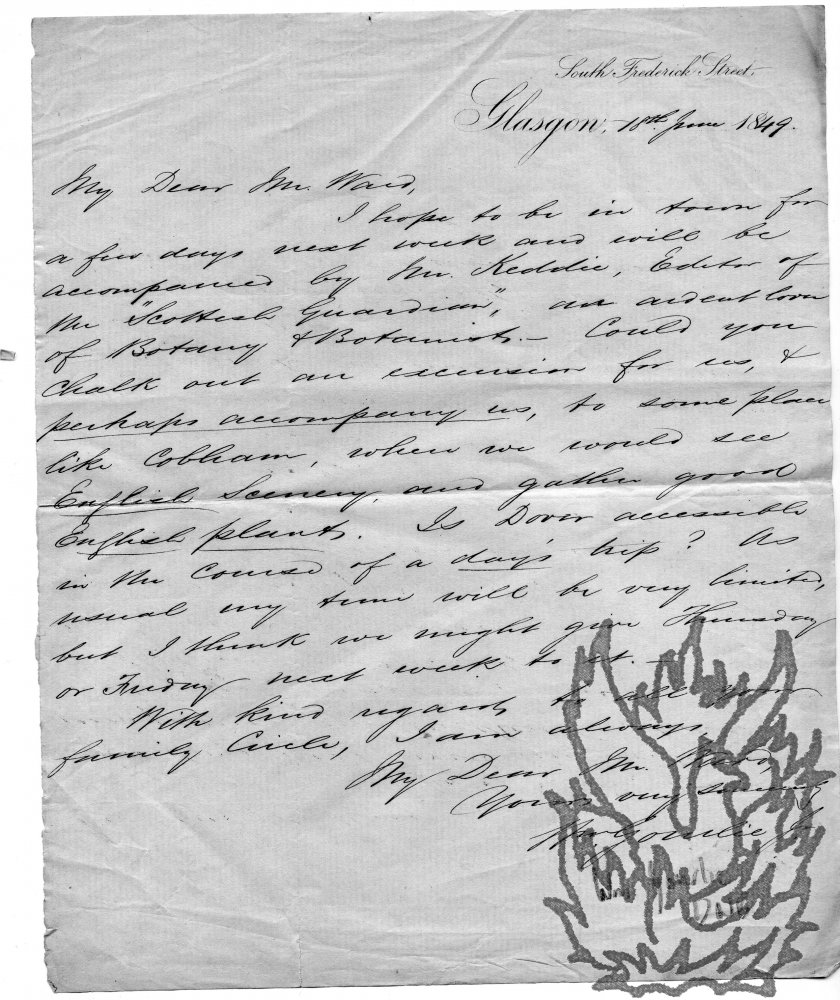 South Frederick Street,
Glasgow, 18th June 1849.
My Dear Mr. Ward,
I hope to be in town for
a few days next week and will be
accompanied by Mr. Keddie, Editor of
the "Scottish Guardian", an ardent lover
of Botany & Botanists. – Could you
chalk out an excursion for us, &
perhaps accompany us, to some place
like Cobham, where we would see
English Scenery, and gather good
English plants. Is Dover accessible
in the course of a day's trip? As
usual my time will be very limited,
but I think we might give Thursday
or Friday next week to it. –
With kind regards to all your
family Circle, I am always,
My Dear Mr. Ward,
Yours very sincerely
Wm Gourlie
Wm Gourlie